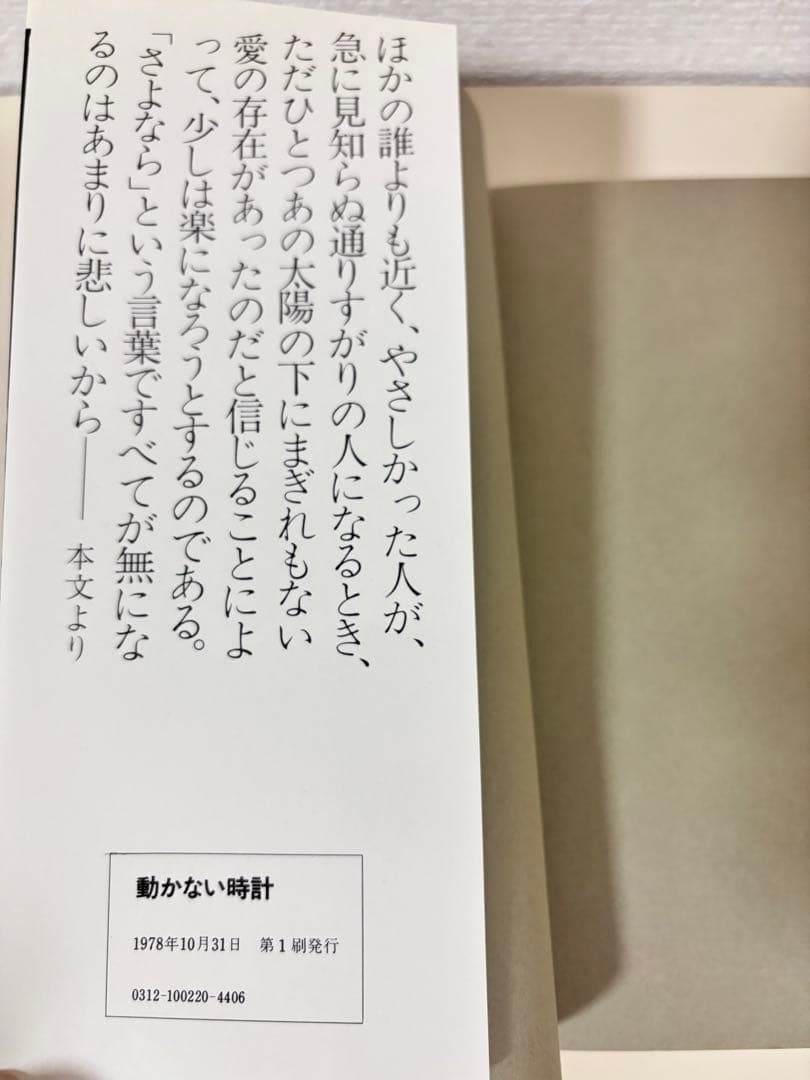 ほかの誰よりも近く、やさしかった人が、
急に見知らぬ通りすがりの人になるとき、
ただひとつあの太陽の下にまぎれもない
愛の存在があったのだと信じることによ
って、少しは楽になろうとするのである。
「さよなら」という言葉ですべてが無にな
るのはあまりに悲しいから――本文より
動かない時計
1978年10月31日　第1刷発行
0312-100220-4406